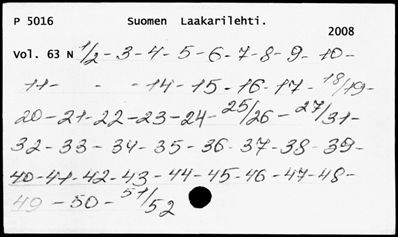 P 5016 Suomen Laakarilehti.
2008
Vol. 63 N 1/2-3-4-5-6-7-8-9-10-
11- - -14-15-16-17-18/19-
20-21-22-23-24-25/26-27/31-
32-33-34-35-36-37-38-39-
40-41-42-43-44-45-46-47-48-
49-50-51/52